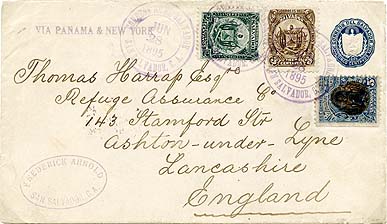 VIA PANAMA & NEW YORK
JUN
1895
SALVADOR, C.A.
1895
SALVADOR
Thomas Harrap Esqre
Refuge Assurance Co
143 Stamford Str
Ashton-under-Lyne
Lancashire
England
FREDERICK ARNOLD
SAN SALVADOR, C.A.